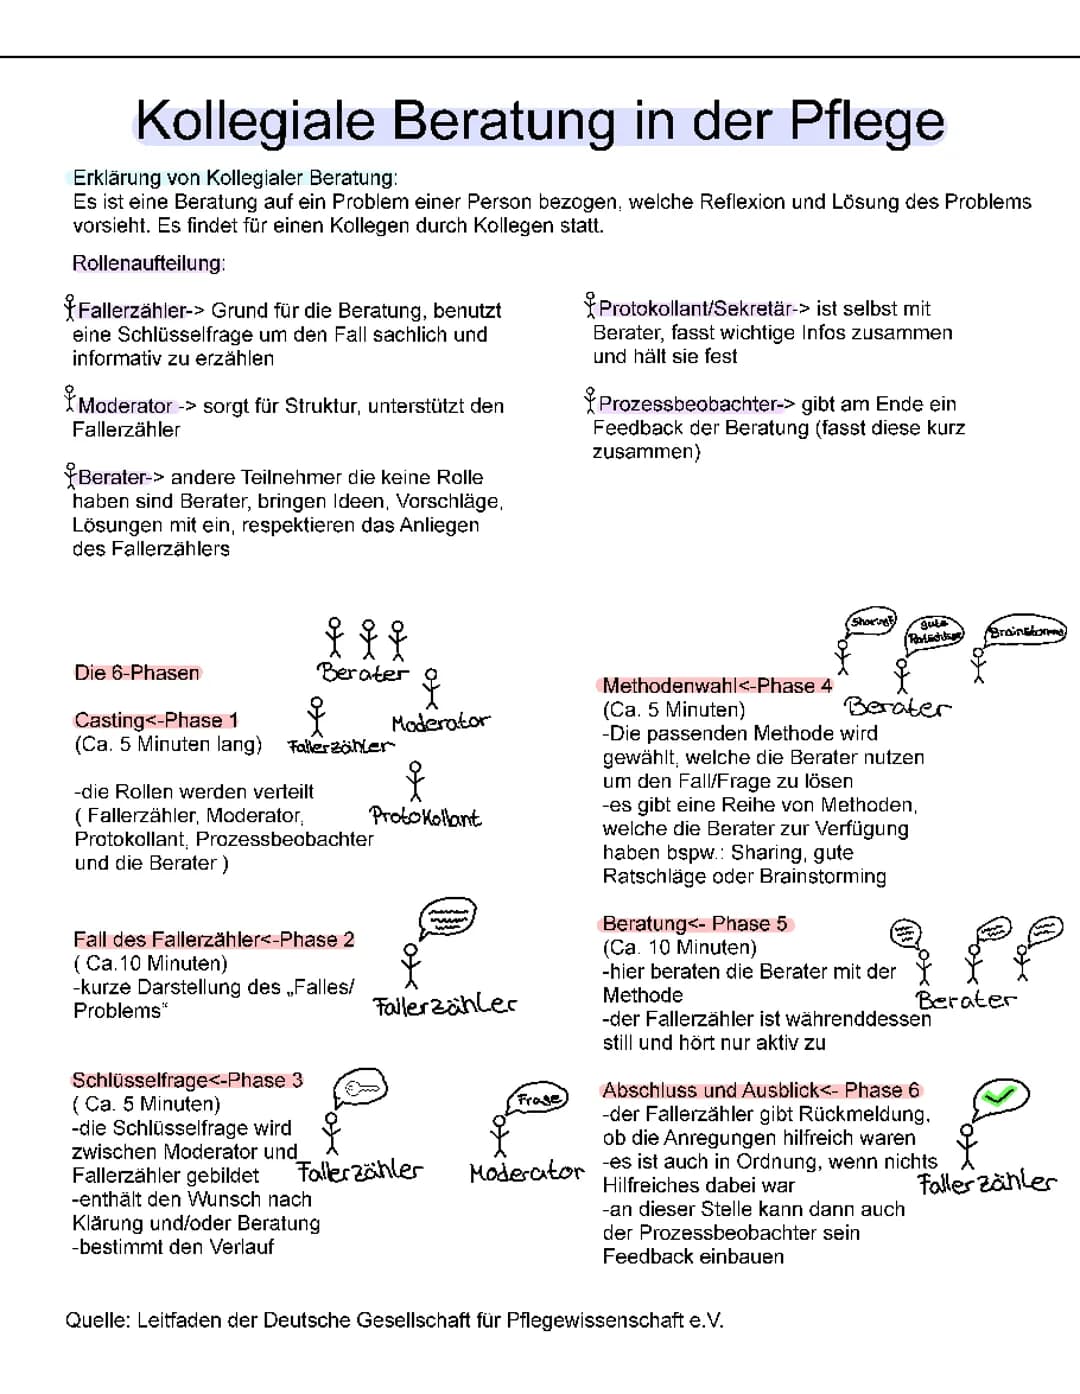 Kollegiale Beratung in der Pflege
Erklärung von Kollegialer Beratung:
Es ist eine Beratung auf ein Problem einer Person bezogen, welche Reflexion und Lösung des Problems
vorsieht. Es findet für einen Kollegen durch Kollegen statt.
Rollenaufteilung:
Fallerzähler-> Grund für die Beratung, benutzt
eine Schlüsselfrage um den Fall sachlich und
informativ zu erzählen
Moderator -> sorgt für Struktur, unterstützt den
Fallerzähler
Berater-> andere Teilnehmer die keine Rolle
haben sind Berater, bringen Ideen, Vorschläge,
Lösungen mit ein, respektieren das Anliegen
des Fallerzählers
Protokollant/Sekretär-> ist selbst mit
Berater, fasst wichtige Infos zusammen
und hält sie fest
Prozessbeobachter-> gibt am Ende ein
Feedback der Beratung (fasst diese kurz
zusammen)
Die 6-Phasen
Berater
Casting<-Phase 1
(Ca. 5 Minuten lang)
Moderator
Fallerzähler
-die Rollen werden verteilt
( Fallerzähler, Moderator,
Protokollant, Prozessbeobachter
und die Berater )
Protokollant
Fall des Fallerzähler<-Phase 2
( Ca.10 Minuten)
-kurze Darstellung des „Falles/
Problems“
Fallerzähler
Schlüsselfrage<-Phase 3
( Ca. 5 Minuten)
-die Schlüsselfrage wird
zwischen Moderator und
Fallerzähler gebildet
-enthält den Wunsch nach
Klärung und/oder Beratung
-bestimmt den Verlauf
Fallerzähler
Frage
Moderator
Sharing
gute
Ratschläge
Brainstorming
Methodenwahl<-Phase 4
(Ca. 5 Minuten)
Berater
-Die passenden Methode wird
gewählt, welche die Berater nutzen
um den Fall/Frage zu lösen
-es gibt eine Reihe von Methoden,
welche die Berater zur Verfügung
haben bspw.: Sharing, gute
Ratschläge oder Brainstorming
Beratung<- Phase 5
(Ca. 10 Minuten)
-hier beraten die Berater mit der
Methode
-der Fallerzähler ist währenddessen
still und hört nur aktiv zu
Berater
Abschluss und Ausblick<- Phase 6
-der Fallerzähler gibt Rückmeldung,
ob die Anregungen hilfreich waren
-es ist auch in Ordnung, wenn nichts
Hilfreiches dabei war
-an dieser Stelle kann dann auch
der Prozessbeobachter sein
Feedback einbauen
Fallerzähler
Quelle: Leitfaden der Deutsche Gesellschaft für Pflegewissenschaft e.V.